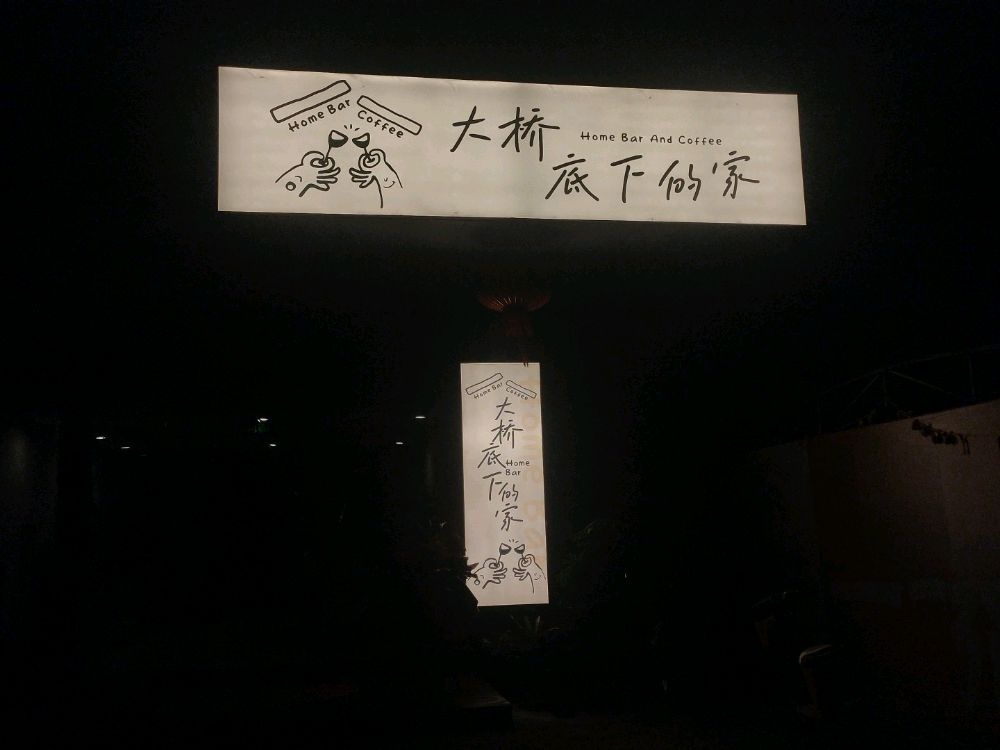 Home Bar
Coffee
大桥
Home Bar And Coffee
底下的家
Home Bar
Coffee
大桥底下的家
Home
Bar